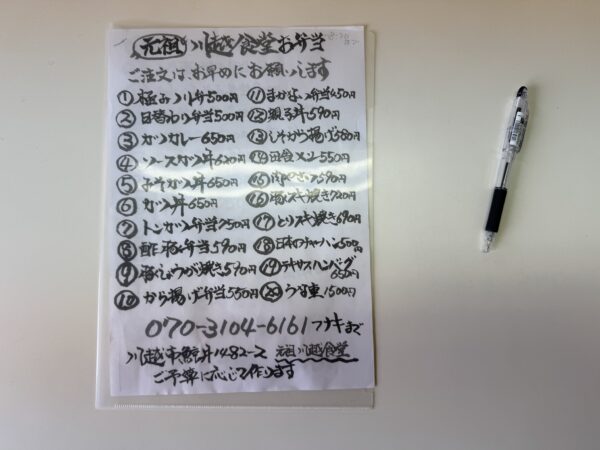 元祖 川越食堂お弁当
ご注文は、お早めにお願いします
① 極み川弁500円
② 日替わり弁当500円
③ カツカレー650円
④ ソースカツ丼620円
⑤ みそカツ丼650円
⑥ カツ丼650円
⑦ トンカツ弁当750円
⑧ 酢豚弁当590円
⑨ 豚しょうが焼き590円
⑩ から揚げ弁当550円
⑪ 弁当450円
⑫ 親子丼590円
⑬ しそから揚げ580円
⑭ 田舎メシ550円
⑮ 590円
⑯ 豚スキ焼き720円
⑰ とりスキ焼き690円
⑱ 日本のチャーハン500円
⑲ テキサスハンバーグ650円
⑳ うな重1500円
070-3104-6161 フナキまで
川越市鯨井1482-2 元祖川越食堂
ご予算に応じて作ります